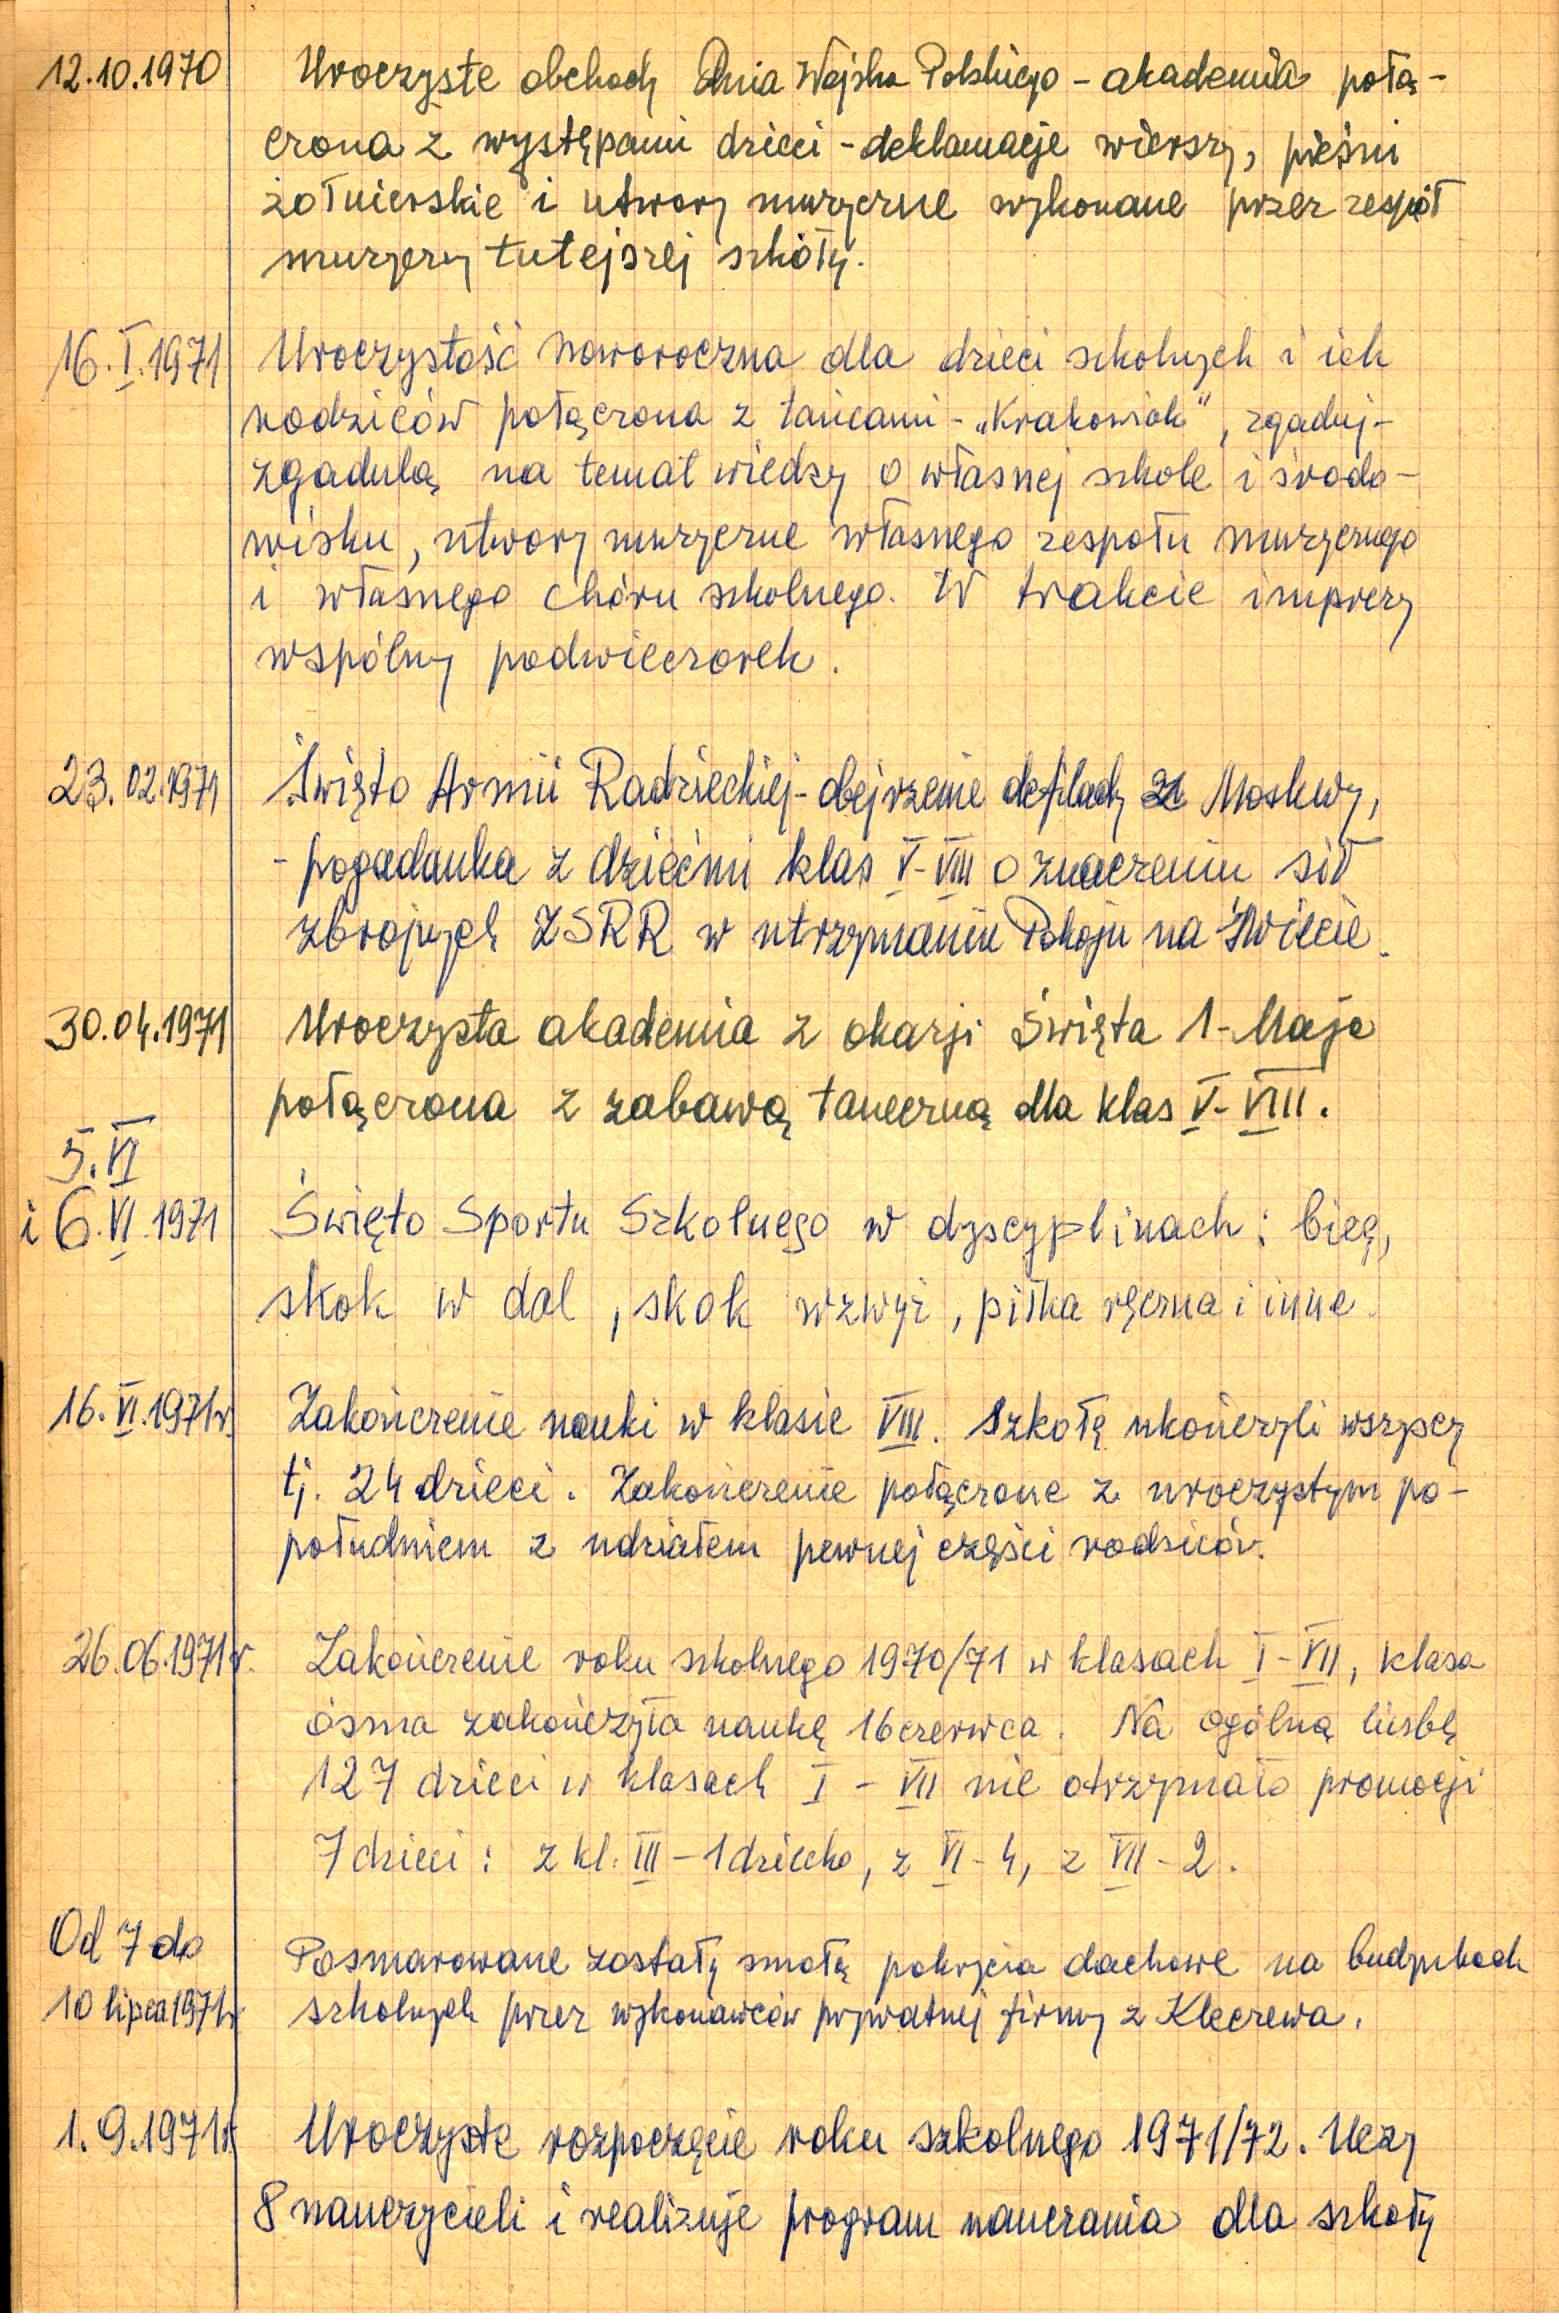 12.10.1970 Uroczyste obchody Dnia Wojska Polskiego - akademia połą-
czona z występami dzieci - deklamacje wierszy, pieśni
żołnierskie i utwory muzyczne wykonane przez zespół
muzyczny tutejszej szkoły.
16.I.1971 Uroczystość noworoczna dla dzieci szkolnych i ich
rodziców połączona z tańcami - „Krakowiak", zgaduj-
zgadulą na temat wiedzy o własnej szkole i środo-
wisku, utwory muzyczne własnego zespołu muzycznego
i własnego chóru szkolnego. W trakcie imprezy
wspólny podwieczorek.
23.02.1971 Święto Armii Radzieckiej - obejrzenie defilady z Moskwy,
- pogadanka z dziećmi klas V-VIII o znaczeniu sił
zbrojnych ZSRR w utrzymaniu Pokoju na Świecie.
30.04.1971 Uroczysta akademia z okazji Święta 1-Maja
połączona z zabawą taneczną dla klas V-VIII.
5.VI
i 6.VI.1971 Święto Sportu Szkolnego w dyscyplinach: bieg,
skok w dal, skok wzwyż, piłka ręczna i inne.
16.VI.1971r. Zakończenie nauki w klasie VIII. Szkołę ukończyli wszyscy
tj. 24 dzieci. Zakończenie połączone z uroczystym po-
południem z udziałem pewnej części rodziców.
26.06.1971r. Zakończenie roku szkolnego 1970/71 w klasach I-VII, klasa
ósma zakończyła naukę 16 czerwca. Na ogólną liczbę
127 dzieci w klasach I - VII nie otrzymało promocji
7 dzieci: z kl. III - 1 dziecko, z VI - 4, z VII - 2.
Od 7 do
10 lipca 1971r Posmarowane zostały smołą pokrycia dachowe na budynkach
szkolnych przez wykonawców prywatnej firmy z Kleczewa.
1.9.1971r. Uroczyste rozpoczęcie roku szkolnego 1971/72. Uczy
8 nauczycieli i realizuje program nauczania dla szkoły